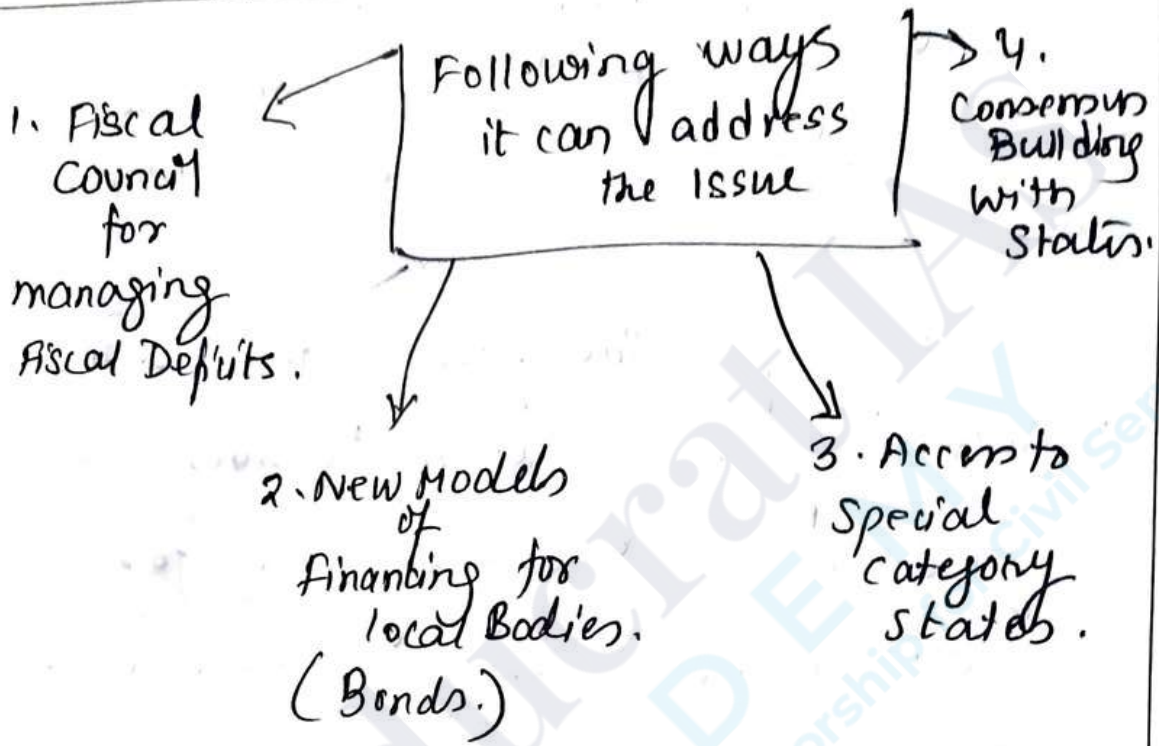 Following ways
it can address
the Issue
1. Fiscal
Council
for
managing
Fiscal Deficits.
2. New Models
of
Financing for
local Bodies.
(Bonds.)
3. Access to
Special
Category
States.
4.
Consensus
Building
with
States.
ucrat IAS
DEMY
orship Civil Ser